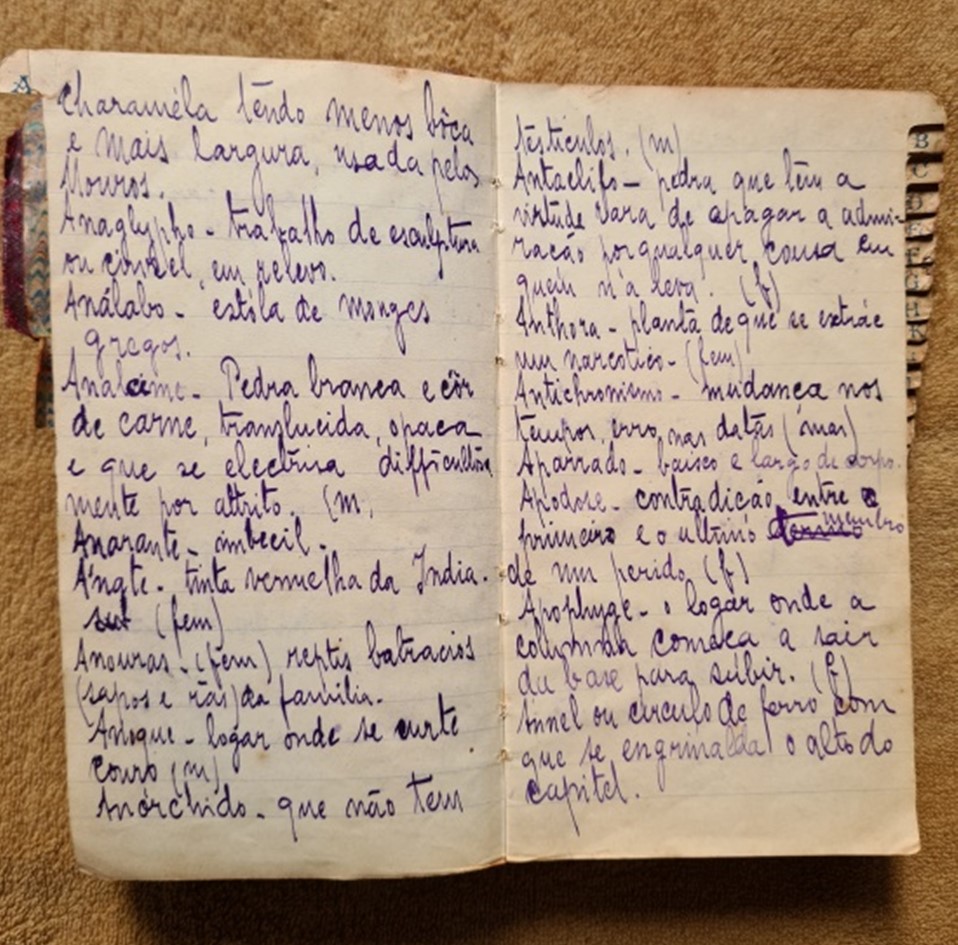 A
charaméla tendo menos bôca
e mais largura, usada pelos
Mouros.
Anaglypho - trabalho de esculptura
ou cinzel, em relevo.
Análabo - estóla de monges
gregos.
Analcime - Pedra branca e côr
de carne, translucida, opaca
e que se electrisa difficultosa
mente por attrito. (m.
Anarante - imbecil -
A'ngte - tinta vermelha da India.
(fem)
Anouras - (fem) reptis batracios
(sapos e rãs) da familia.
Anoque - logar onde se curte
couro (m)
Anórchido - que não tem
testiculos. (m)
Antaclifo - pedra que têm a
virtude vara de apagar a admi-
ração por qualquer cousa em
quem n'a leva. (f)
Anthora - planta de que se extráe
um narcotico - (fem)
Antichronismo - mudança nos
tempos, erro nas datas (mas)
Aparrado - baixo e largo de corpo.
Apodose - contradicção entre o
primeiro e o ultimo membro
de um perido (f)
Apophyge - o logar onde a
columna comeca a sair
da base para subir. (f)
Annel ou circulo de ferro com
que se engrinalda o alto do
capitel.
B
C
D
E
F
G
H